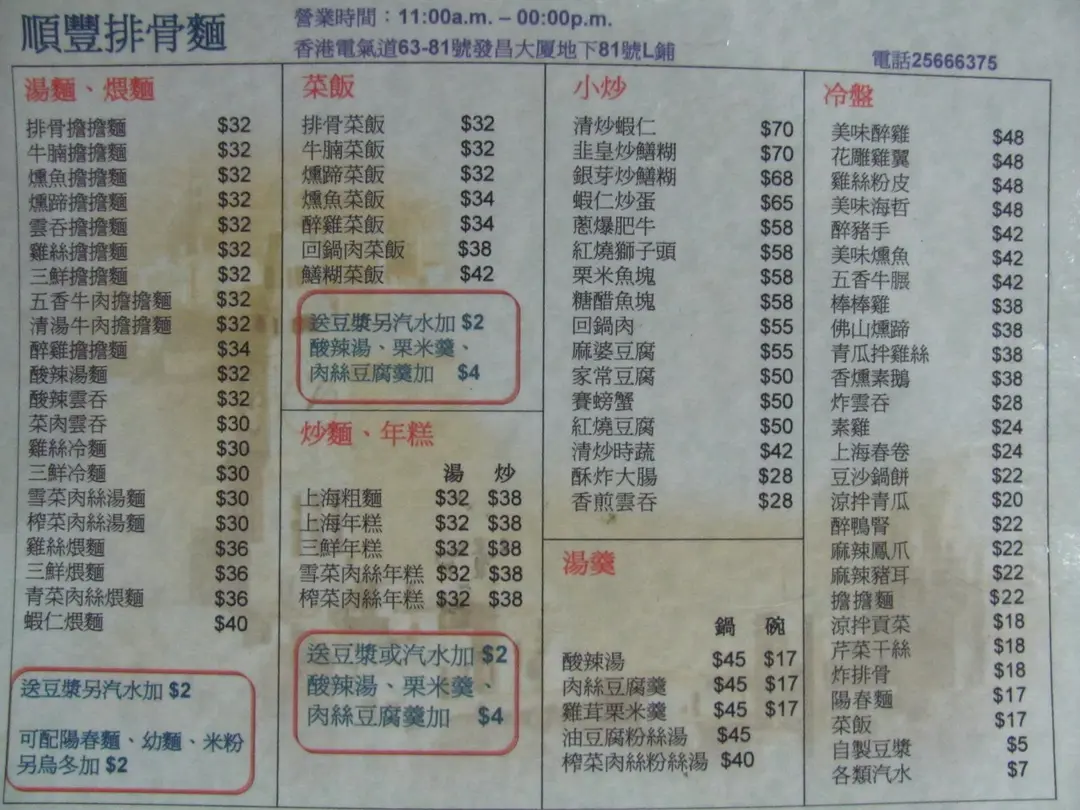 順豐排骨麵
營業時間：11:00a.m. – 00:00p.m.
香港電氣道63-81號發昌大厦地下81號L鋪
電話25666375
湯麵、煨麵
排骨擔擔麵 $32
牛腩擔擔麵 $32
燻魚擔擔麵 $32
燻蹄擔擔麵 $32
雲吞擔擔麵 $32
雞絲擔擔麵 $32
三鮮擔擔麵 $32
五香牛肉擔擔麵 $32
清湯牛肉擔擔麵 $32
醉雞擔擔麵 $34
酸辣湯麵 $32
酸辣雲吞 $32
菜肉雲吞 $30
雞絲冷麵 $30
三鮮冷麵 $30
雪菜肉絲湯麵 $30
榨菜肉絲湯麵 $30
雞絲煨麵 $36
三鮮煨麵 $36
青菜肉絲煨麵 $36
蝦仁煨麵 $40
送豆漿另汽水加 $2
可配陽春麵、幼麵、米粉
另烏冬加 $2
菜飯
排骨菜飯 $32
牛腩菜飯 $32
燻蹄菜飯 $32
燻魚菜飯 $34
醉雞菜飯 $34
回鍋肉菜飯 $38
鱔糊菜飯 $42
送豆漿另汽水加 $2
酸辣湯、栗米羹、
肉絲豆腐羹加 $4
炒麵、年糕
湯 炒
上海粗麵 $32 $38
上海年糕 $32 $38
三鮮年糕 $32 $38
雪菜肉絲年糕 $32 $38
榨菜肉絲年糕 $32 $38
送豆漿或汽水加 $2
酸辣湯、栗米羹、
肉絲豆腐羹加 $4
小炒
清炒蝦仁 $70
韭皇炒鱔糊 $70
銀芽炒鱔糊 $68
蝦仁炒蛋 $65
蔥爆肥牛 $58
紅燒獅子頭 $58
栗米魚塊 $58
糖醋魚塊 $58
回鍋肉 $55
麻婆豆腐 $55
家常豆腐 $50
賽螃蟹 $50
紅燒豆腐 $50
清炒時蔬 $42
酥炸大腸 $28
香煎雲吞 $28
湯羹
鍋 碗
酸辣湯 $45 $17
肉絲豆腐羹 $45 $17
雞茸栗米羹 $45 $17
油豆腐粉絲湯 $45
榨菜肉絲粉絲湯 $40
冷盤
美味醉雞 $48
花雕雞翼 $48
雞絲粉皮 $48
美味海哲 $48
醉豬手 $42
美味燻魚 $42
五香牛𦟌 $42
棒棒雞 $38
佛山燻蹄 $38
青瓜拌雞絲 $38
香燻素鵝 $38
炸雲吞 $28
素雞 $24
上海春卷 $24
豆沙鍋餅 $22
涼拌青瓜 $20
醉鴨腎 $22
麻辣鳳爪 $22
麻辣豬耳 $22
擔擔麵 $22
涼拌頁菜 $18
芹菜干絲 $18
炸排骨 $18
陽春麵 $17
菜飯 $17
自製豆漿 $5
各類汽水 $7